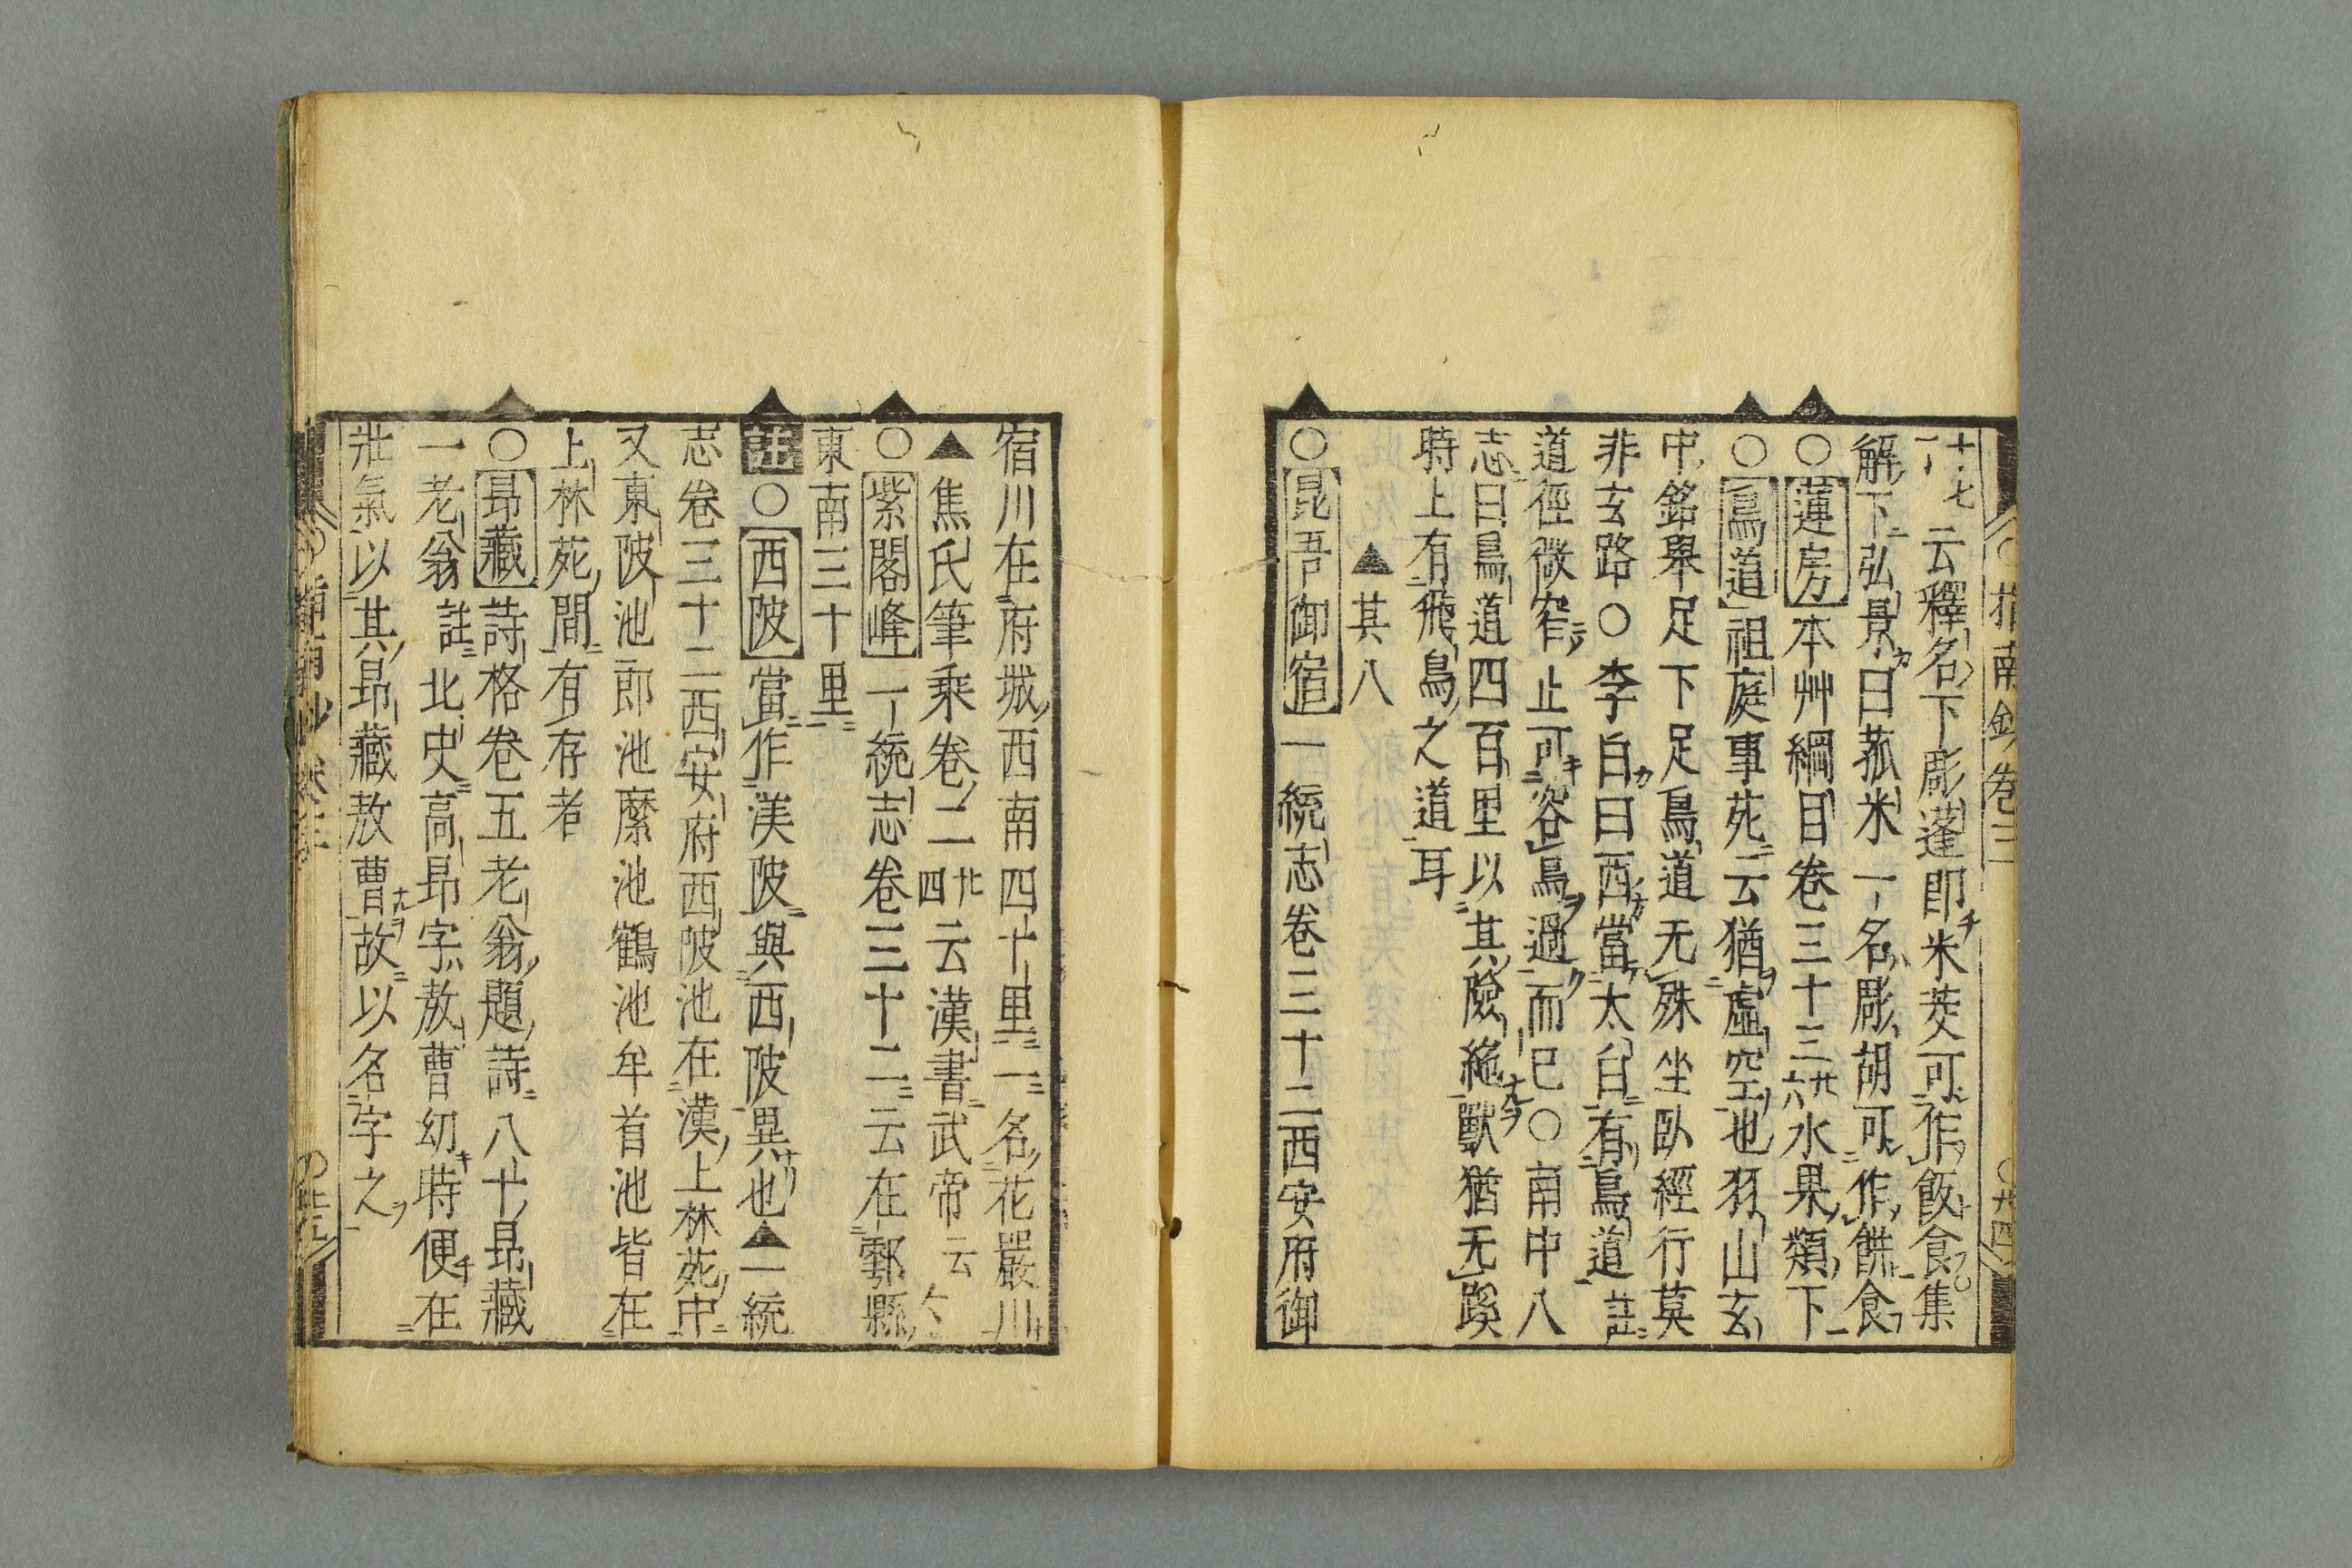 十七丁云釋名下彫蓬即米茭可作飯食集
解下弘景曰菰米一名彫胡可作餅食
○蓮房本艸綱目卷三十三廿六水果類下
○鳥道祖庭事苑云猶虛空也羽山玄
中銘舉足下足鳥道无殊坐臥經行莫
非玄路○李白曰西當太白有鳥道註
道徑微窄止可容鳥過而已○南中八
志曰鳥道四百里以其險絶獸猶无蹊
時上有飛鳥之道耳
▲其八
○昆吾御宿一統志卷三十二西安府御
宿川在府城西南四十里一名花嚴川
▲焦氏筆乘卷二廿四云漢書武帝云々
○紫閣峰一統志卷三十二云在鄠縣
東南三十里
註○西陂當作渼陂與西陂異也▲一統
志卷三十二西安府西陂池在漢上林苑中
又東陂池郎池麋池鶴池牟首池皆在
上林苑間有存者
○昂藏詩格卷五老翁題詩八十昂藏
一老翁註北史高昂字敖曹幼時便在
壯氣以其昂藏敖曹故以名字之
指南鈔卷三
○廿四